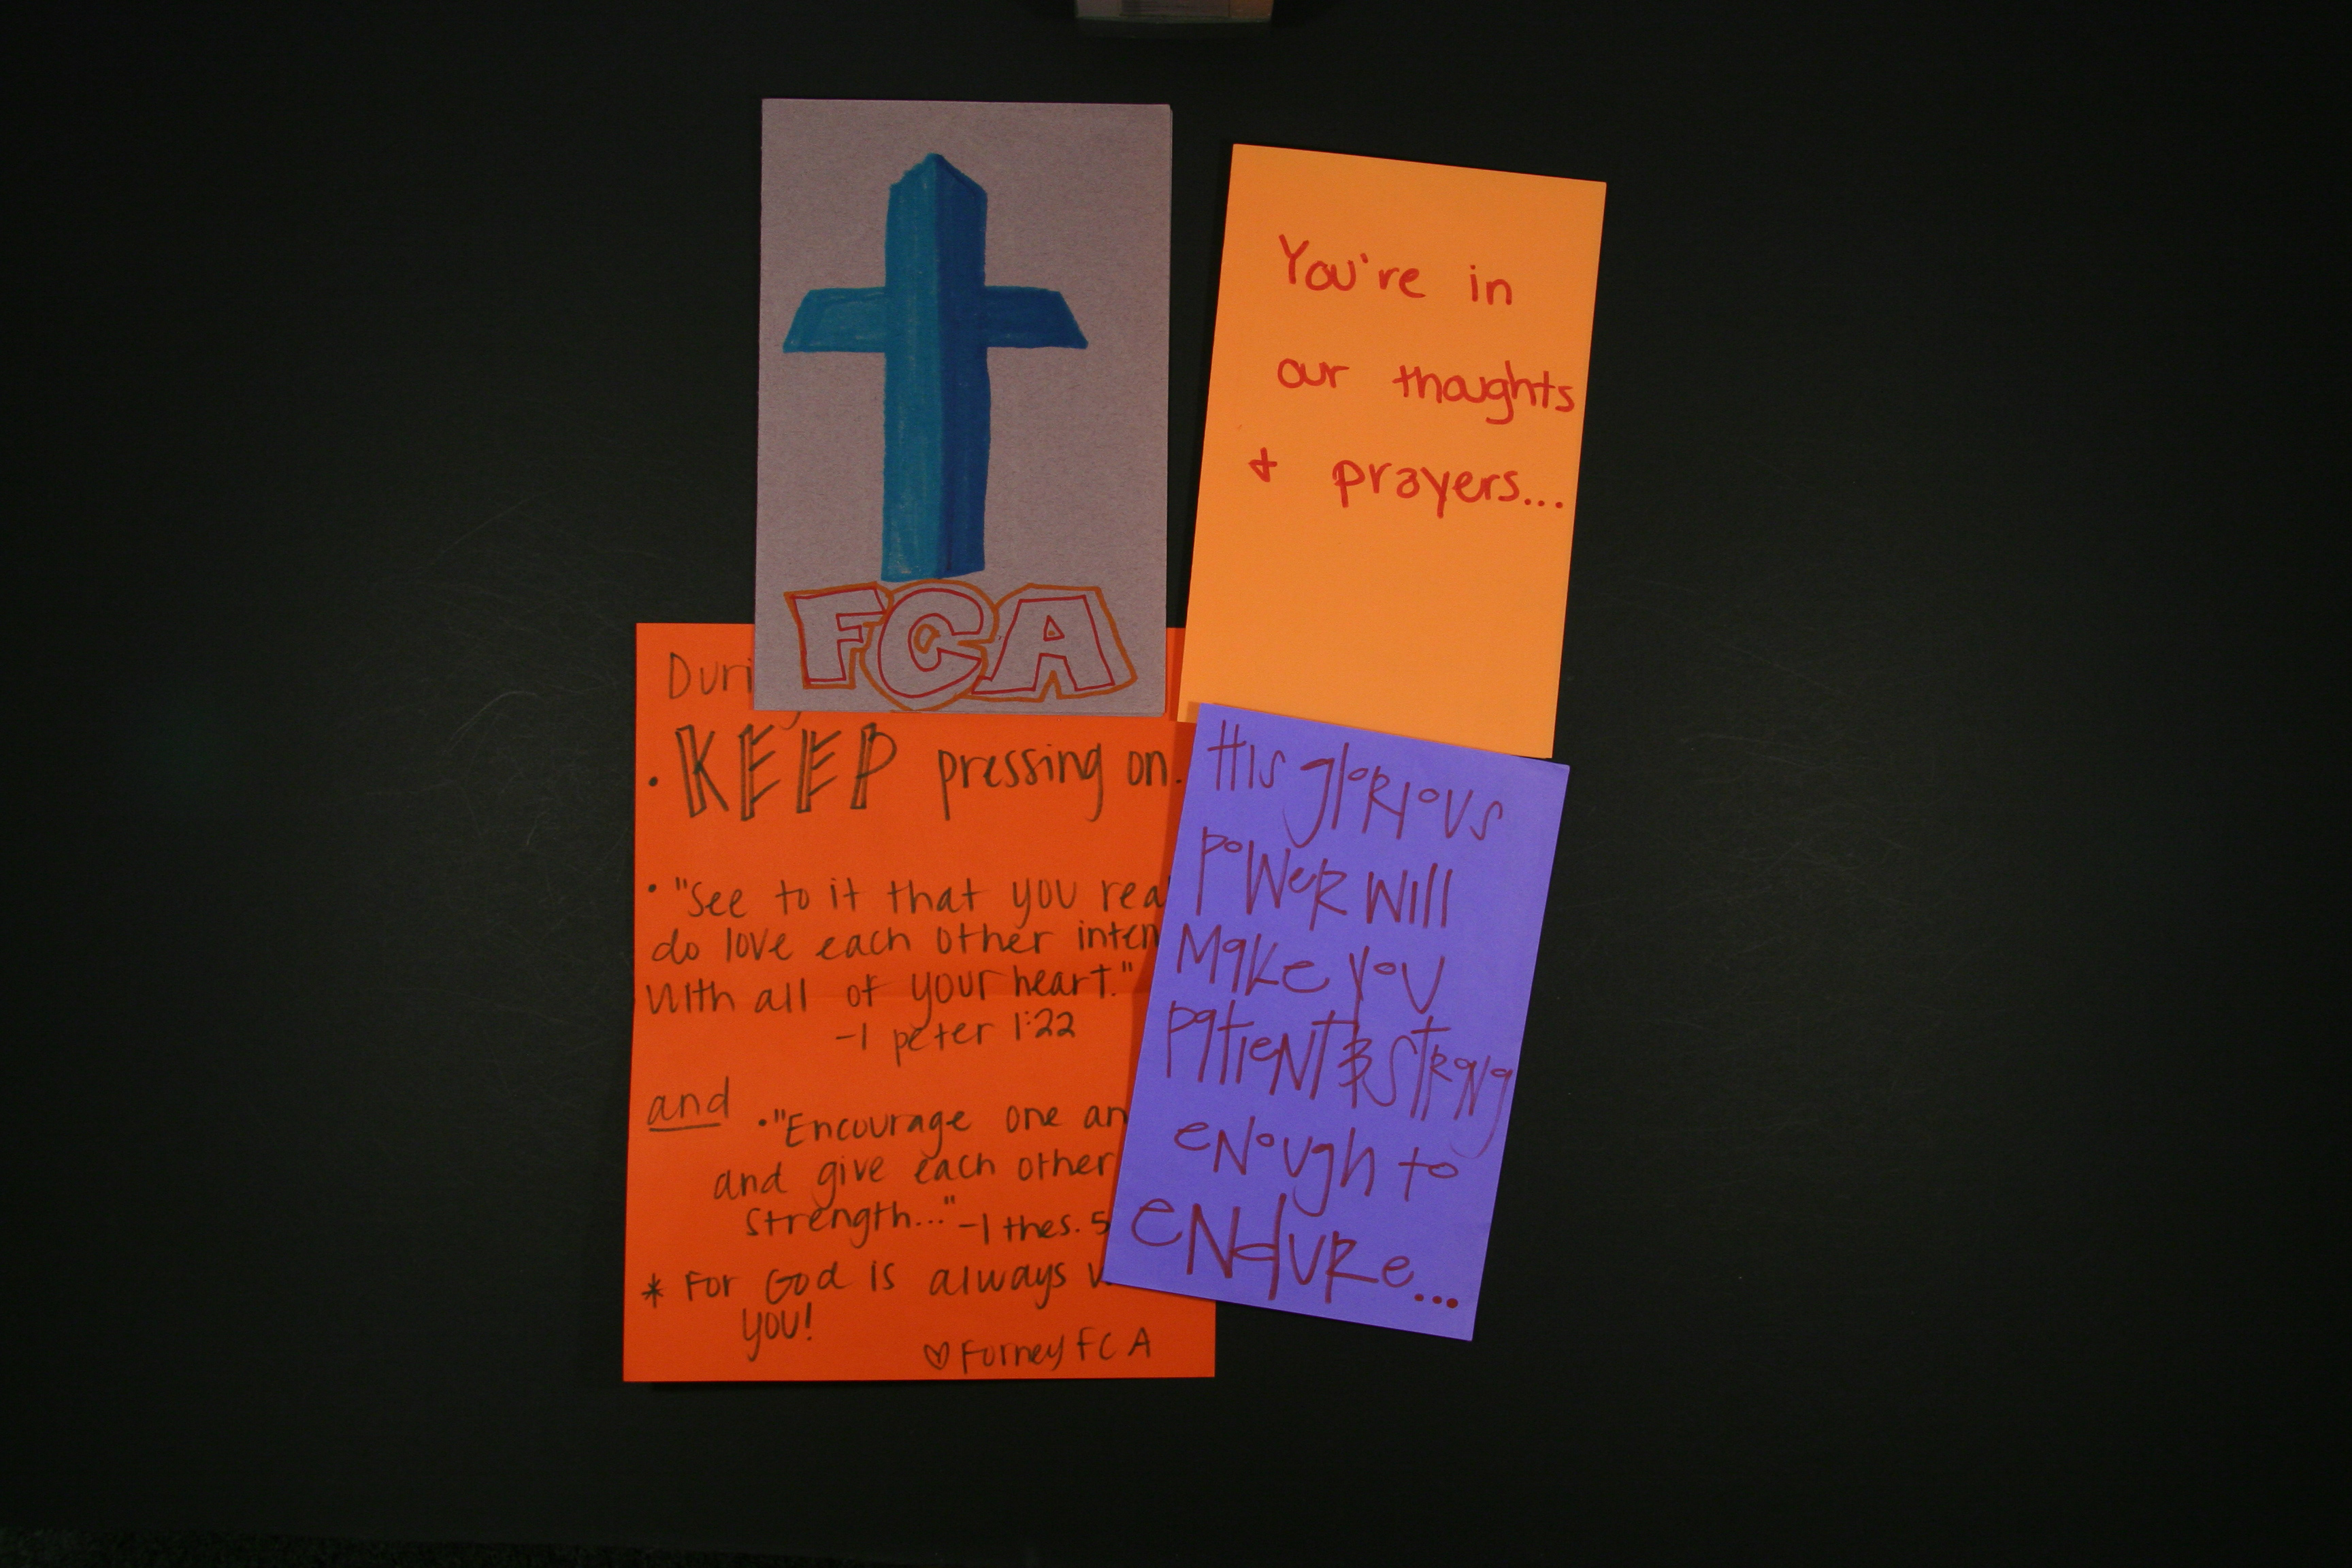 FCA
You're in
our thoughts
& prayers...
• KEEP pressing on.
• "See to it that you
do love each other
with all of your heart."
-1 peter 1:22
and • "Encourage one
and give each other
strength..." -1 thes. 5
* For God is always
you!
♡ Forney FCA
His glorious
power will
make you
patient & strong
enough to
endure...